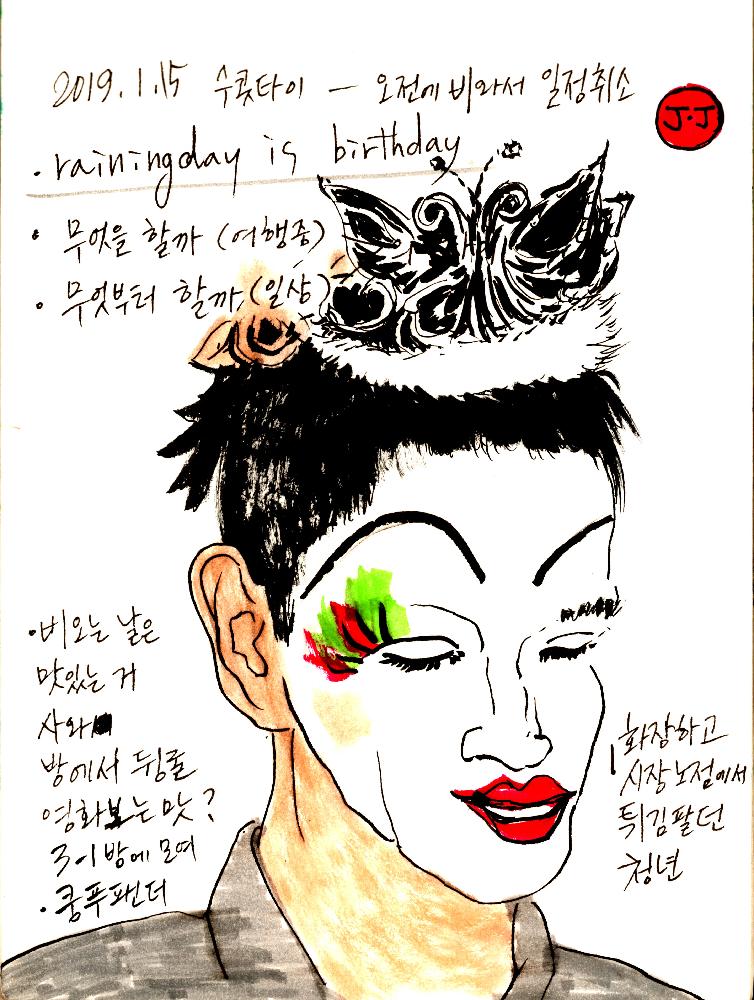 2019.1.15 수콧타이 — 오전에 비와서 일정취소
J.J
· rainingday is birthday
· 무엇을 할까 (여행중)
· 무엇부터 할까 (일상)
· 비오는 날은
맛있는 거
사와
방에서 뒹굴
영화보는 맛?
301방에 모여
· 쿵푸팬더
화장하고
시장노점에서
튀김팔던
청년